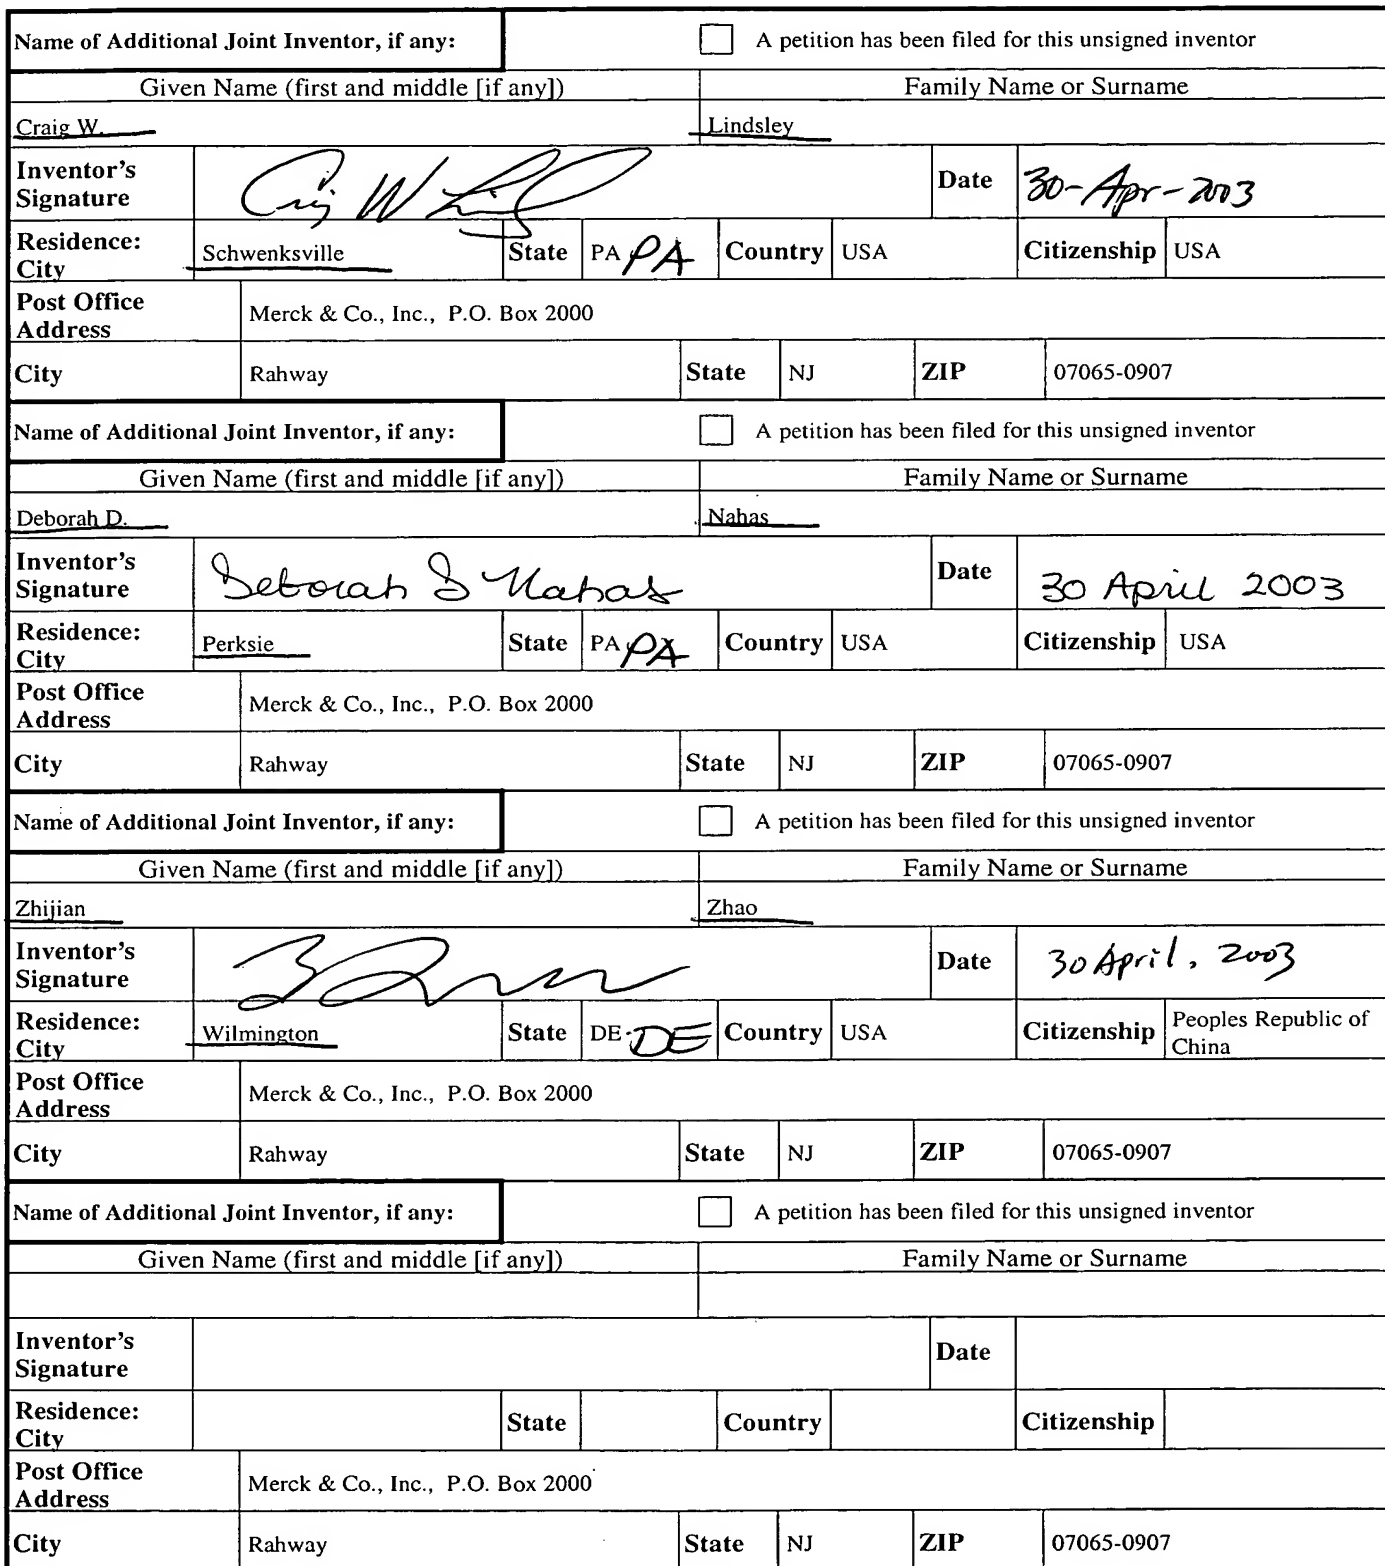 Name of Additional Joint Inventor, if any: A petition has been filed for this unsigned inventor
Given Name (first and middle [if any]) Family Name or Surname
Craig W. Lindsley
Inventor's Signature Craig W Date 30-Apr-2003
Residence: City Schwenksville State PA PA Country USA Citizenship USA
Post Office Address Merck & Co., Inc., P.O. Box 2000
City Rahway State NJ ZIP 07065-0907
Name of Additional Joint Inventor, if any: A petition has been filed for this unsigned inventor
Given Name (first and middle [if any]) Family Name or Surname
Deborah D. Nahas
Inventor's Signature Deborah D Nahas Date 30 April 2003
Residence: City Perksie State PA PA Country USA Citizenship USA
Post Office Address Merck & Co., Inc., P.O. Box 2000
City Rahway State NJ ZIP 07065-0907
Name of Additional Joint Inventor, if any: A petition has been filed for this unsigned inventor
Given Name (first and middle [if any]) Family Name or Surname
Zhijian Zhao
Inventor's Signature Date 30 April, 2003
Residence: City Wilmington State DE DE Country USA Citizenship Peoples Republic of China
Post Office Address Merck & Co., Inc., P.O. Box 2000
City Rahway State NJ ZIP 07065-0907
Name of Additional Joint Inventor, if any: A petition has been filed for this unsigned inventor
Given Name (first and middle [if any]) Family Name or Surname
Inventor's Signature Date
Residence: City State Country Citizenship
Post Office Address Merck & Co., Inc., P.O. Box 2000
City Rahway State NJ ZIP 07065-0907